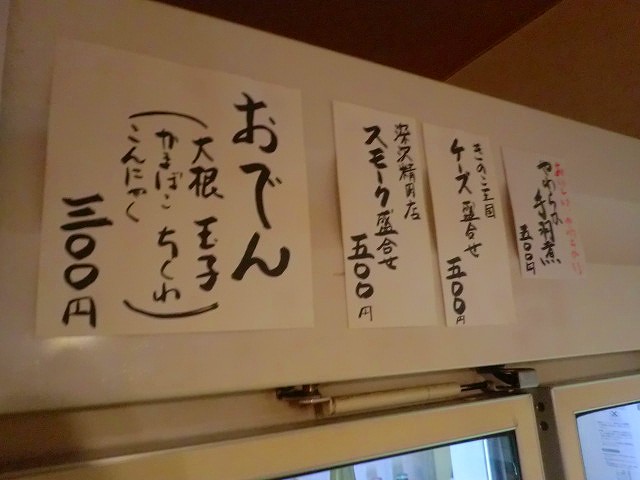 おでん
(大根 玉子
かまぼこ ちくわ
こんにゃく)
三〇〇円
深沢精肉店
スモーク盛合せ
五〇〇円
きのこ王国
チーズ盛合せ
五〇〇円
やわらか
煮
五〇〇円